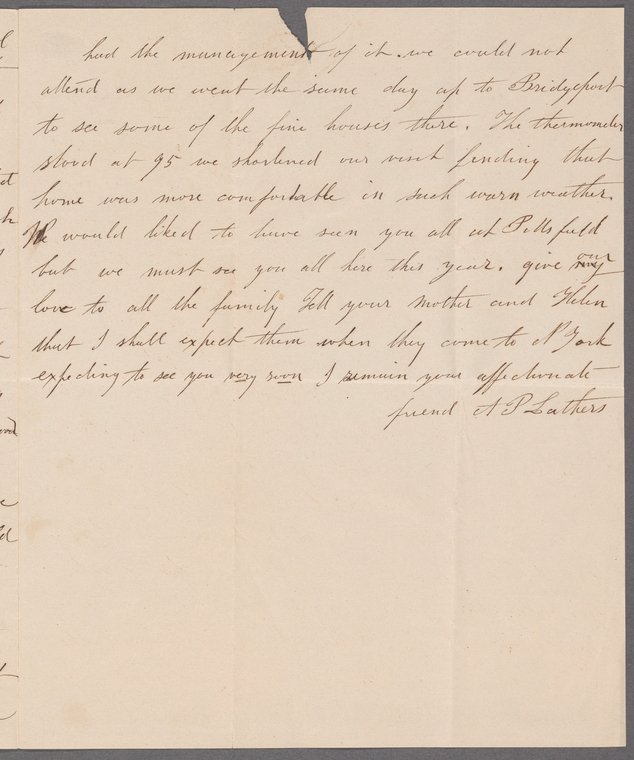 had the management of it. we could not
attend as we went the same day up to Bridgeport
to see some of the fine houses there. The thermometer
stood at 95 we shortened our visit finding that
home was more comfortable in such warm weather.
We would liked to have seen you all at Pittsfield
but we must see you all here this year. give my our
love to all the family Tell your Mother and Helen
that I shall expect them when they come to N York
expecting to see you very soon I remain your affectionate
friend A P Lathers